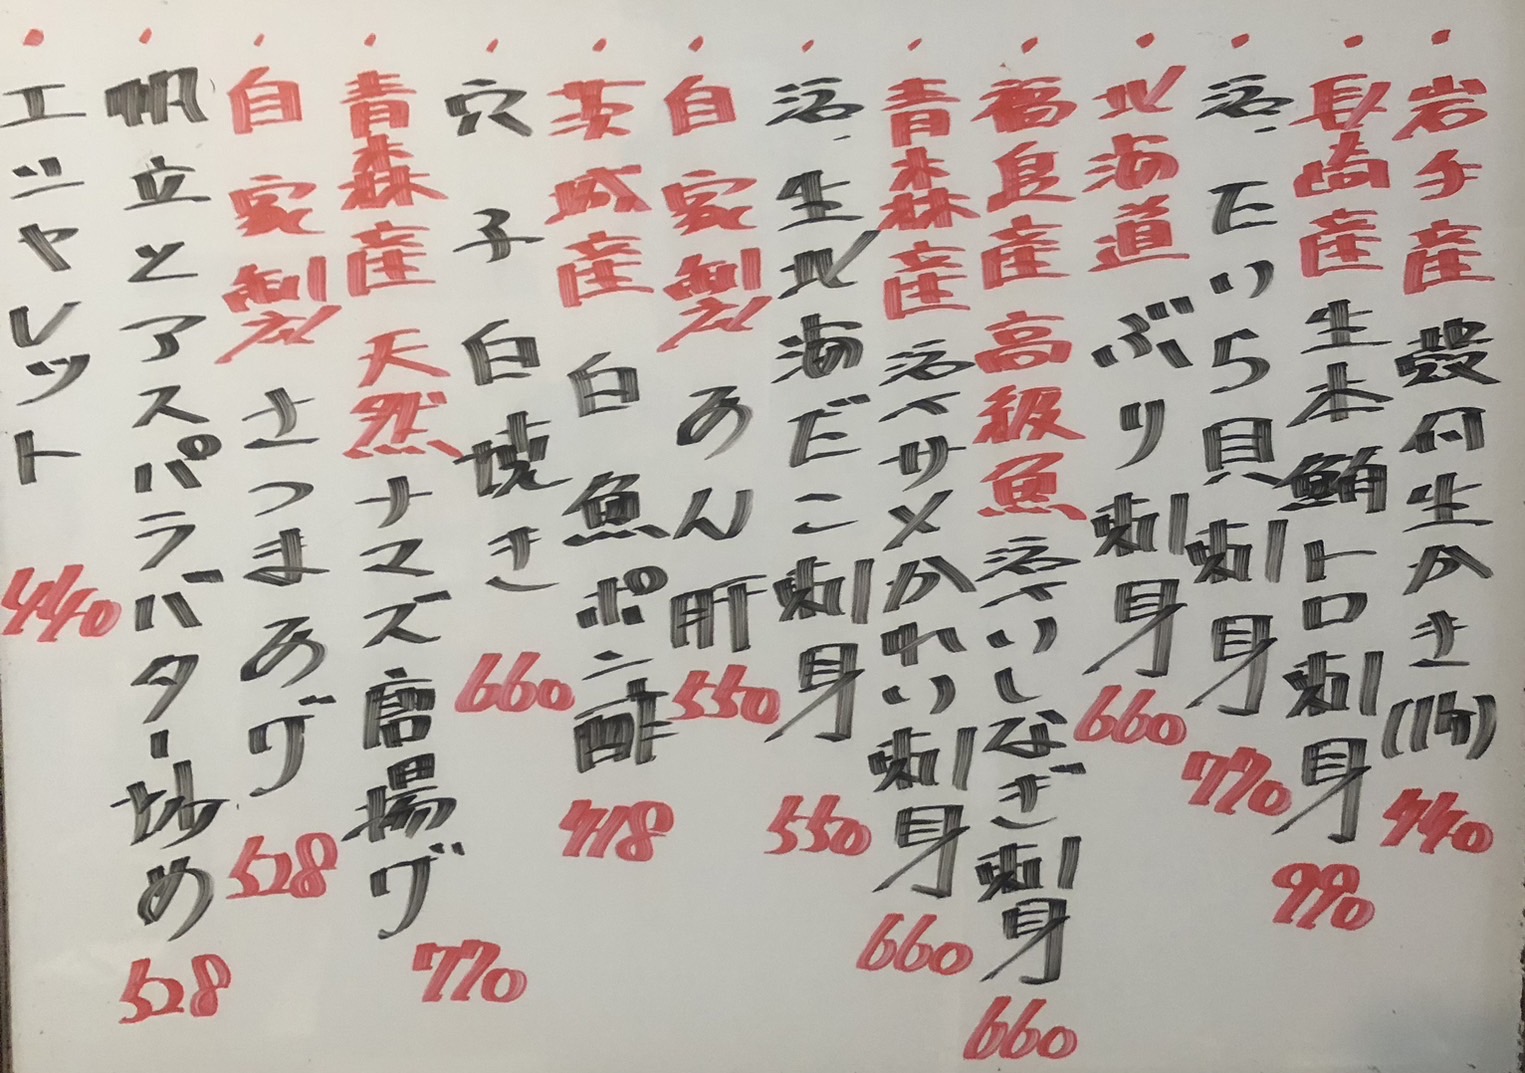 ・岩手産 殻付生かき(1ケ) 440
・長崎産 生本鮪トロ刺身 990
・活、たいら貝刺身 770
・北海道 ぶり刺身 660
・福島産 高級魚 活〆いしなぎ刺身 660
・青森産 活〆サメかれい刺身 660
・活、生北海だこ刺身 550
・自家製 あん肝 550
・茨城産 白魚ポン酢 418
・穴子白焼き 660
・青森産 天然ナマズ唐揚げ 770
・自家製 さつまあげ 528
・帆立とアスパラバター炒め 528
・エシャレット 440